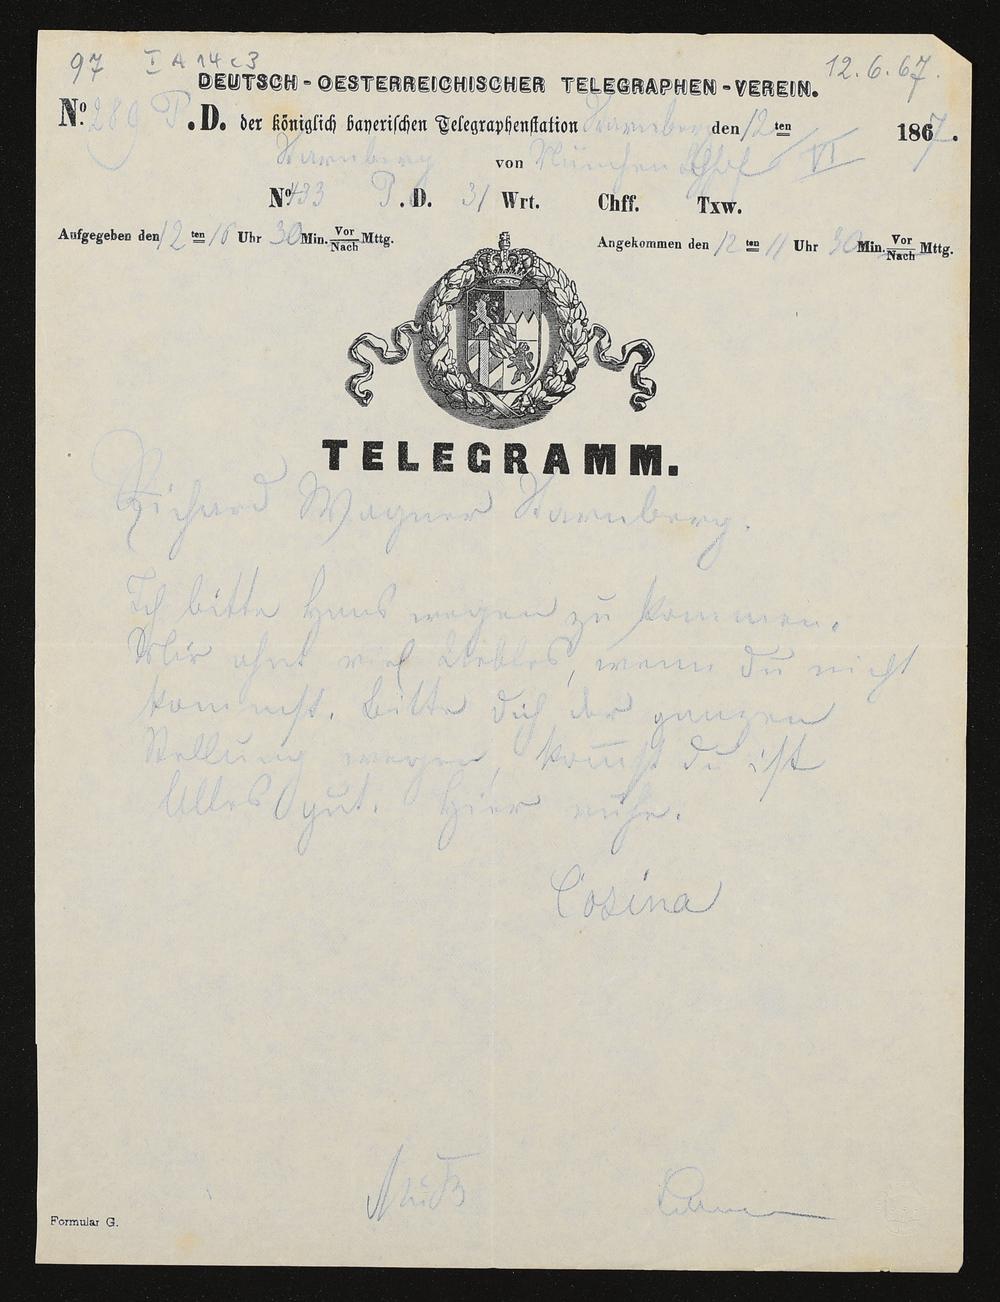 97 I A 14 c 3
12.6.67.
DEUTSCH-OESTERREICHISCHER TELEGRAPHEN-VEREIN.
No. 289 P.D. der königlich bayerischen Telegraphenstation Starnberg den 12ten VI 1867.
Starnberg von München
No. 433 P.D. 31 Wrt. Chff. Txw.
Aufgegeben den 12 ten 10 Uhr 30 Min. Vor Nach Mttg.
Angekommen den 12 ten 11 Uhr 30 Min. Vor Nach Mttg.
TELEGRAMM.
Richard Wagner Starnberg.
Ich bitte Hans wegen zu kommen.
Mir ahnt viel Liebles, wenn du nicht
kommst. Bitte dich der ganzen
Stellung wegen, kom̄st du ist
Alles gut. Hier ruhe.
Cosima
Formular G.